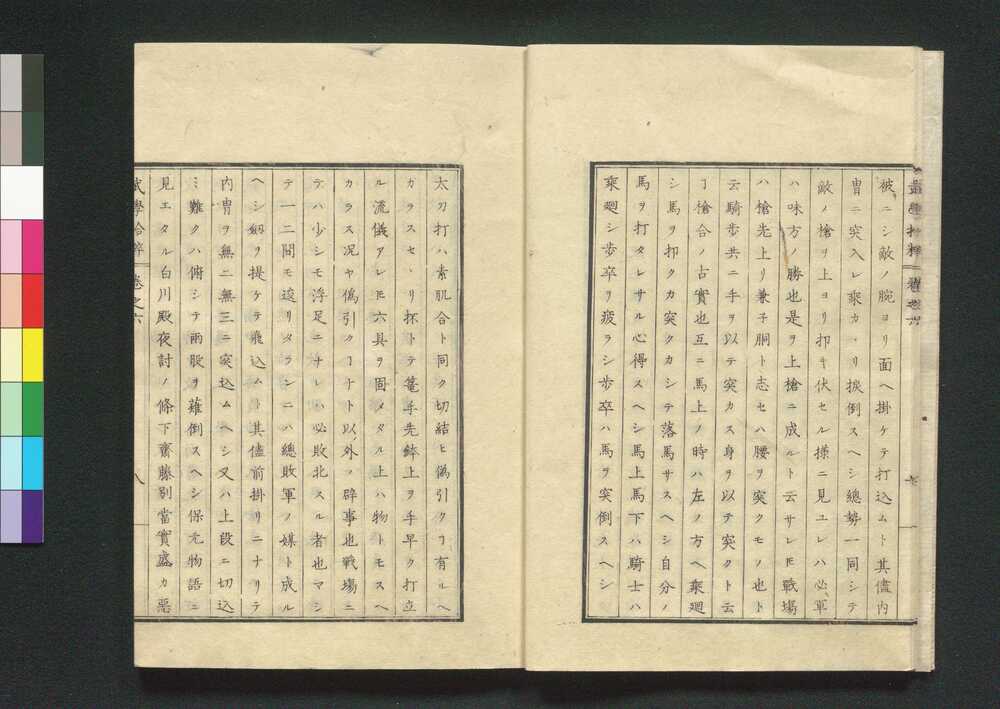 被ニシ敵ノ腕ヨリ面ヘ掛ケテ打込ムト其儘内
冑ニ突入レ乗カヽリ捩倒スヘシ總勢一同シテ
敵ノ槍ヲ上ヨリ抑キ伏セル様ニ見ユレハ必軍
ハ味方ノ勝也是ヲ上槍ニ成ルト云サレ𪜈戰場
ハ槍先上リ兼子胴ト志セハ腰ヲ突クモノ也ト
云騎歩共ニ手ヲ以テ突カス身ヲ以テ突クト云
ヿ槍合ノ古實也互ニ馬上ノ時ハ左ノ方ヘ乗廻
シ馬ヲ抑クカ突クカシテ落馬サスヘシ自分ノ
馬ヲ打タレサル心得スヘシ馬上馬下ハ騎士ハ
乗廻シ歩卒ヲ疲ラシ歩卒ハ馬ヲ突倒スヘシ
太刀打ハ素肌合ト同ク切結ヒ偽引クヿ有ルヘ
カラスセヽリ抔トテ篭手先鉢上ヲ手早ク打立
ル流儀アレ𪜈六具ヲ固メタル上ハ物トモスヘ
カラス况ヤ偽引クヿナト以外ノ辟事也戰場ニ
テハ少シモ浮足ニナレハ必敗北スル者也マシ
テ一二間モ逡リタランニハ總敗軍ノ媒ト成ル
ヘシ劔ヲ提ケテ飛込ムト其儘前掛リニナリテ
内冑ヲ無ニ無三ニ突込ムヘシ又ハ上段ニ切込
ミ難クハ俯シテ両股ヲ薙倒スヘシ保元物語ニ
見エタル白川殿夜討ノ條下齋藤別當實盛カ惡
武學拾粹 卷之六
八